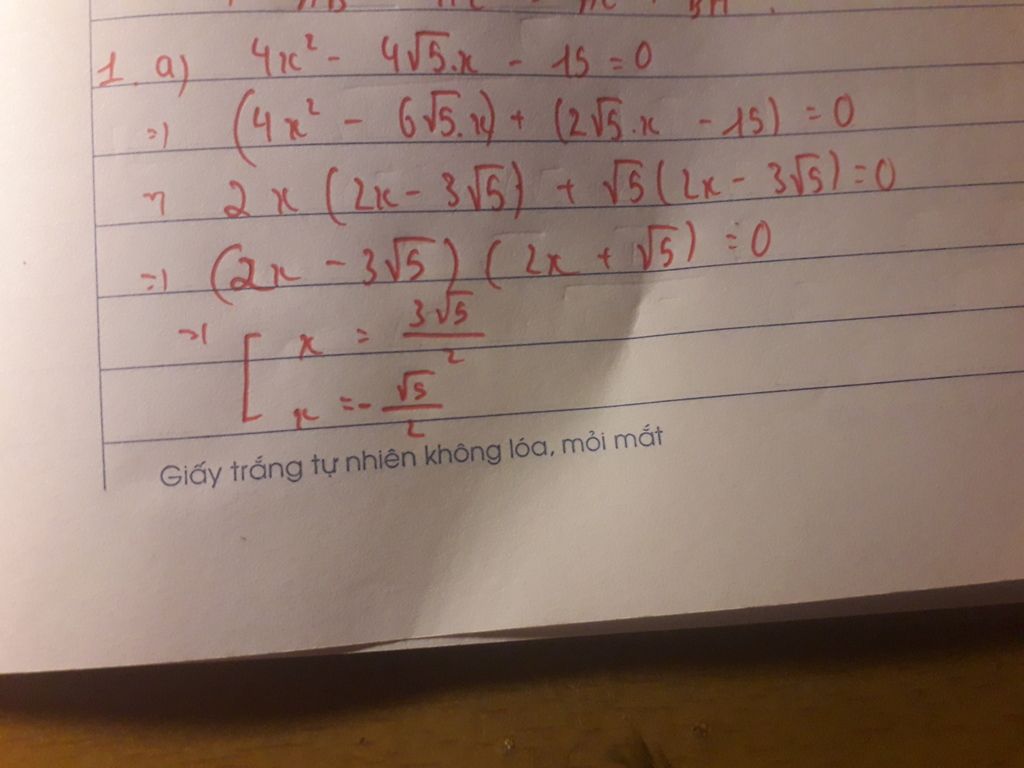 1. a) 4x² - 4√5.x - 15 = 0
=> (4x² - 6√5.x) + (2√5.x - 15) = 0
=> 2x (2x - 3√5) + √5 (2x - 3√5) = 0
=> (2x - 3√5) (2x + √5) = 0
=> [ x = 3√5/2
x = -√5/2
Giấy trắng tự nhiên không lóa, mỏi mắt